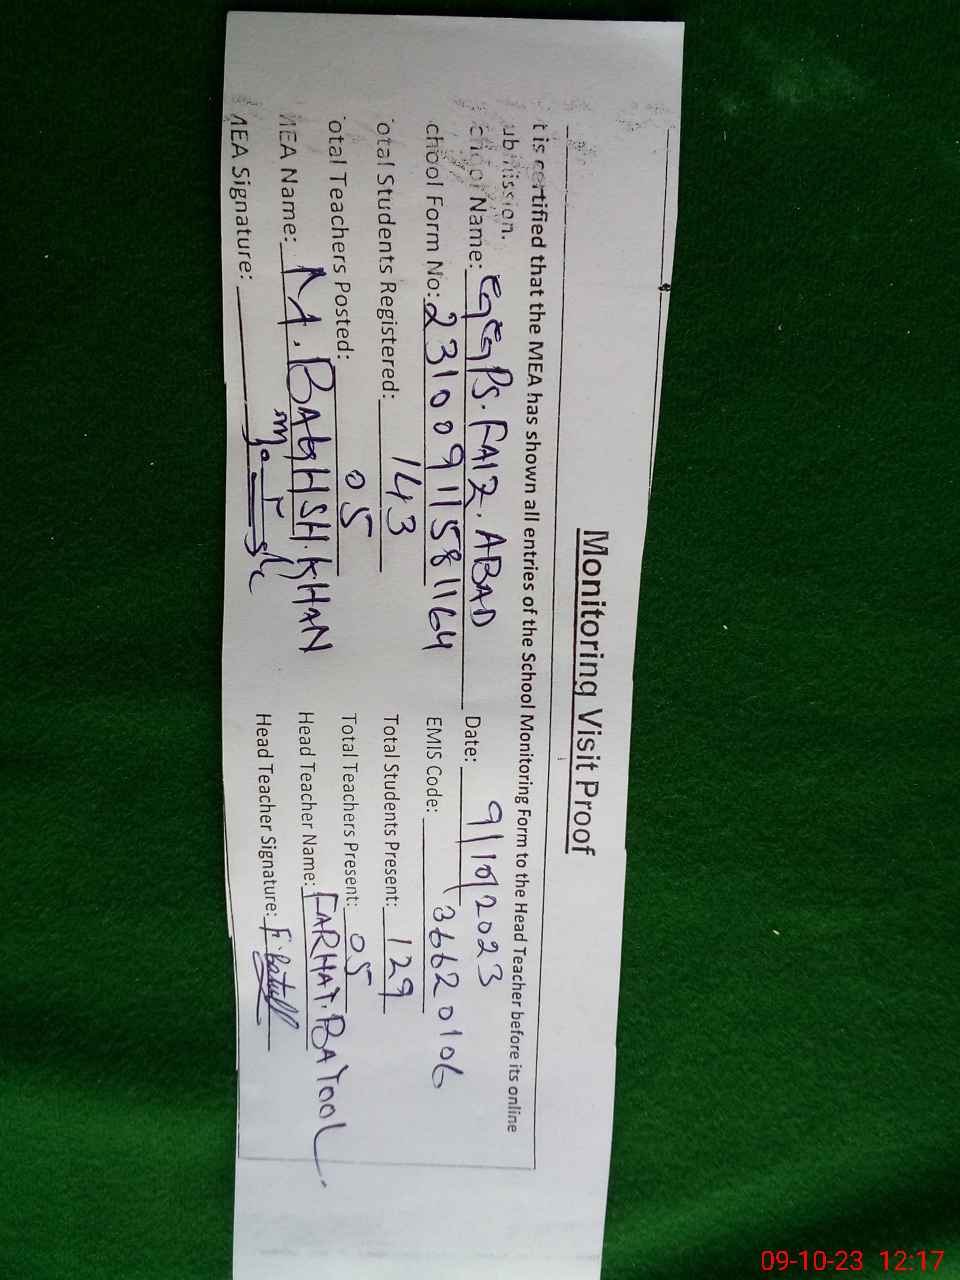 Monitoring Visit Proof
t is certified that the MEA has shown all entries of the School Monitoring Form to the Head Teacher before its online
ubmission.
chool Name: GGPS. FAIZ. ABAD Date: 9/10/2023
chool Form No: 2310091158 1164 EMIS Code: 36620106
otal Students Registered: 143 Total Students Present: 129
otal Teachers Posted: 05 Total Teachers Present: 05
MEA Name: M. BAKHSH. KHAN Head Teacher Name: FARHAT. BATOOL
MEA Signature: Head Teacher Signature: F. Batull
09-10-23 12:17